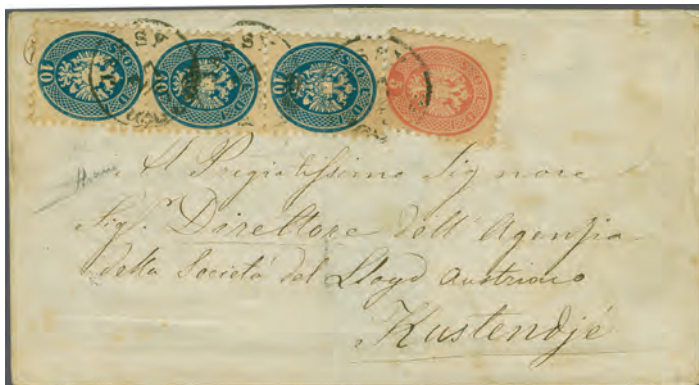 10 SOLDI 10 SOLDI 10 SOLDI 5 SOLDI
Al Pregiatissimo Signore
Sig.r Direttore dell' Agenzia
della Società del Lloyd Austriaco
Kustendjé